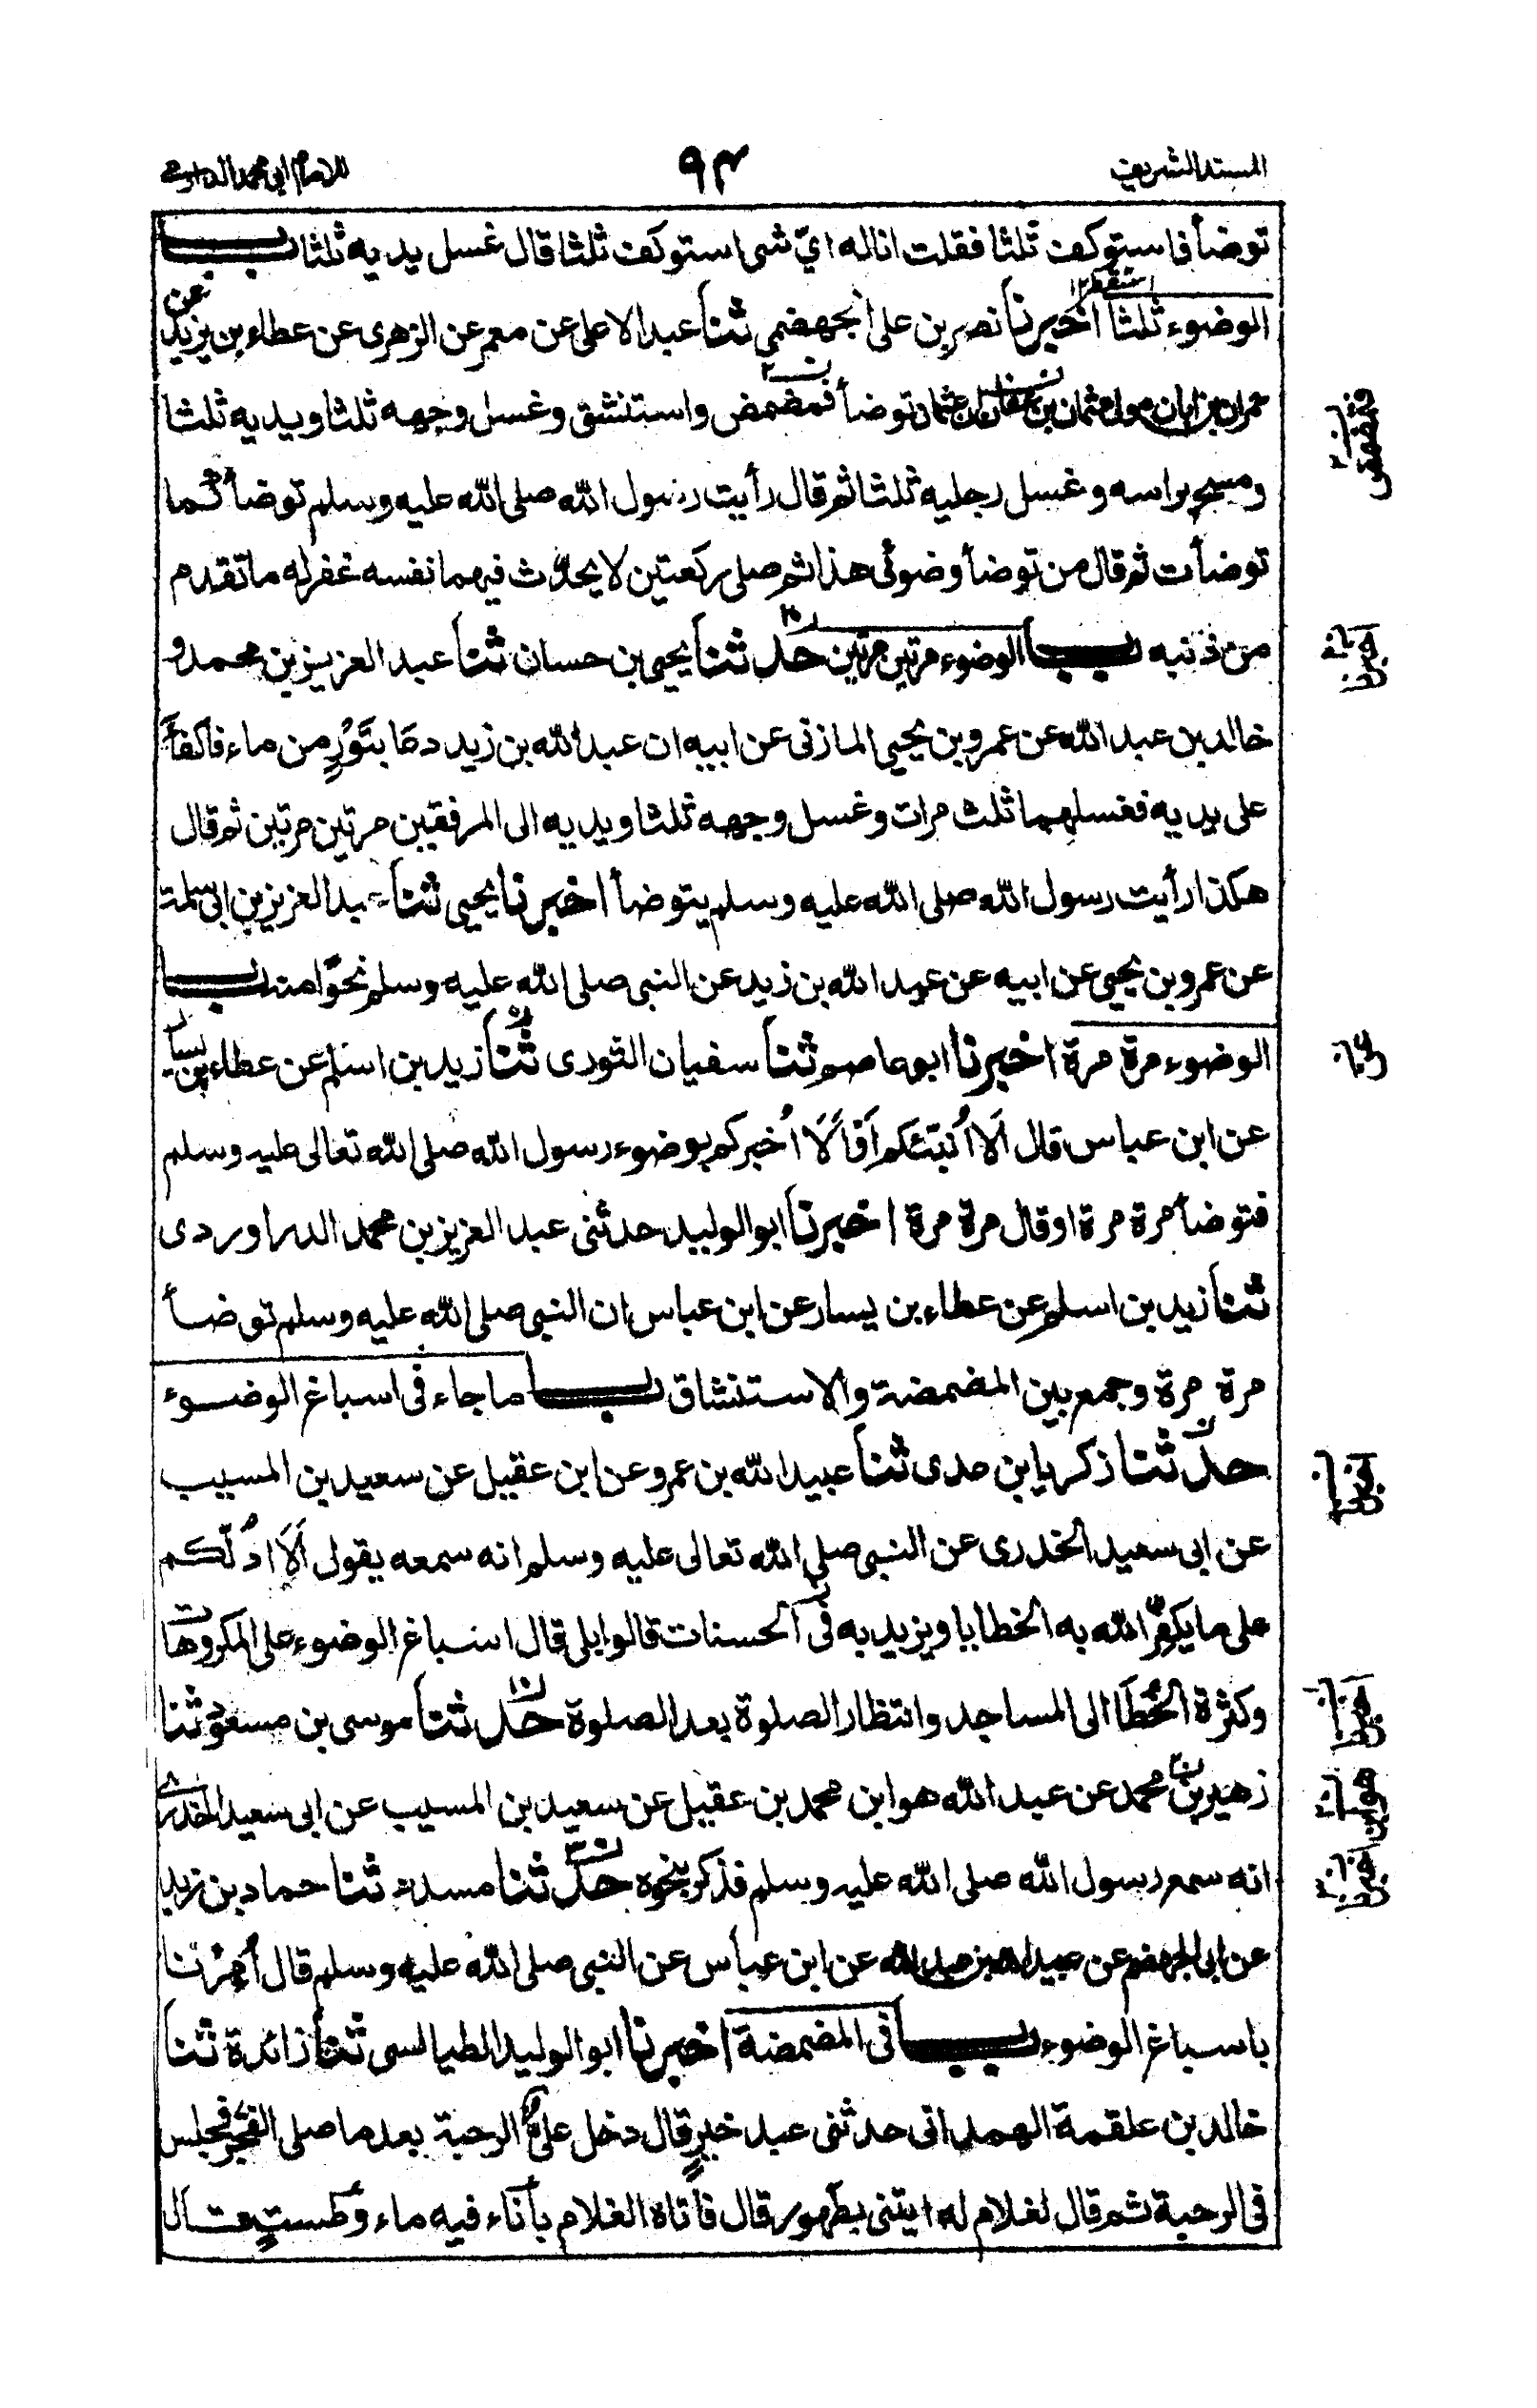 المسند الشريف
٩٣
للامام ابی محمد الدارمی
توضأ فاستوكف ثلثا فقلت اناله ايّ شی استوكف ثلثا قال غسل يديه ثلثا بــاب
الوضوء ثلثا اخبرنا نصر بن علی الجهضمی ثنا عبد الاعلی عن معمر عن الزهری عن عطاء بن يزيد عن
حمران بن ابان مولی عثمان بن عفان ان عثمان توضأ فمضمض واستنشق وغسل وجهه ثلثا ويديه ثلثا
ومسح براسه وغسل رجليه ثلثا ثم قال رأيت رسول الله صلی الله عليه وسلم توضأ كما
توضأت ثم قال من توضأ وضوئی هذا ثم صلی ركعتين لا يحدّث فيهما نفسه غفر له ما تقدم
من ذنبه بــاب الوضوء مرتين مرتين حدثنا يحيی بن حسان ثنا عبد العزيز بن محمد و
خالد بن عبد الله عن عمرو بن يحيی المازنی عن ابيه ان عبد الله بن زيد دعَا بتَوْرٍ من ماء فاكفأ
علی يديه فغسلهما ثلث مرات وغسل وجهه ثلثا ويديه الی المرفقين مرتين مرتين ثم قال
هكذا رأيت رسول الله صلی الله عليه وسلم يتوضأ اخبرنا يحيی ثنا عبد العزيز بن ابی سلمة
عن عمرو بن يحيی عن ابيه عن عبد الله بن زيد عن النبی صلی الله عليه وسلم نحوًا منه بــاب
الوضوء مرة مرة اخبرنا ابو عاصم ثنا سفيان الثوری ثنا زيد بن اسلم عن عطاء بن يسار
عن ابن عباس قال اَلا اُنبّئكم اَوْ اَلَا اُخبركم بوضوء رسول الله صلی الله تعالی عليه وسلم
فتوضأ مرة مرة او قال مرة مرة اخبرنا ابو الوليد حدثنی عبد العزيز بن محمد الدراوردی
ثنا زيد بن اسلم عن عطاء بن يسار عن ابن عباس ان النبی صلی الله عليه وسلم توضأ
مرة مرة وجمع بين المضمضة والاستنشاق بــاب ما جاء فی اسباغ الوضوء
حدّثنا زكريا بن عدی ثنا عبيد الله بن عمرو عن ابن عقيل عن سعيد بن المسيب
عن ابی سعيد الخدری عن النبی صلی الله تعالی عليه وسلم انه سمعه يقول اَلَا ادُلّكم
علی ما يكفّر الله به الخطايا ويزيد به فی الحسنات قالوا بلی قال اسباغ الوضوء علی المكروهات
وكثرة الخُطَا الی المساجد وانتظار الصلوة بعد الصلوة حدثنا موسی بن مسعود ثنا
زهير بن محمد عن عبد الله هو ابن محمد بن عقيل عن سعيد بن المسيب عن ابی سعيد الخدری
انه سمع رسول الله صلی الله عليه وسلم فذكر بنحوه حدثنا مسدد ثنا حماد بن زيد
عن ابی الجهضم عن عبيد الله بن عبد الله عن ابن عباس عن النبی صلی الله عليه وسلم قال اُمِرْنا
باسباغ الوضوء بــاب فی المضمضة اخبرنا ابو الوليد الطيالسی ثنا زائدة ثنا
خالد بن علقمة الهمدانی حدثنی عبد خيرٍ قال دخل علیٌّ الرحبة بعد ما صلی الفجر فجلس
فی الرحبة ثم قال لغلام له ايتنی بطهور قال فاتاه الغلام بأناء فيه ماء وطستٍ قال